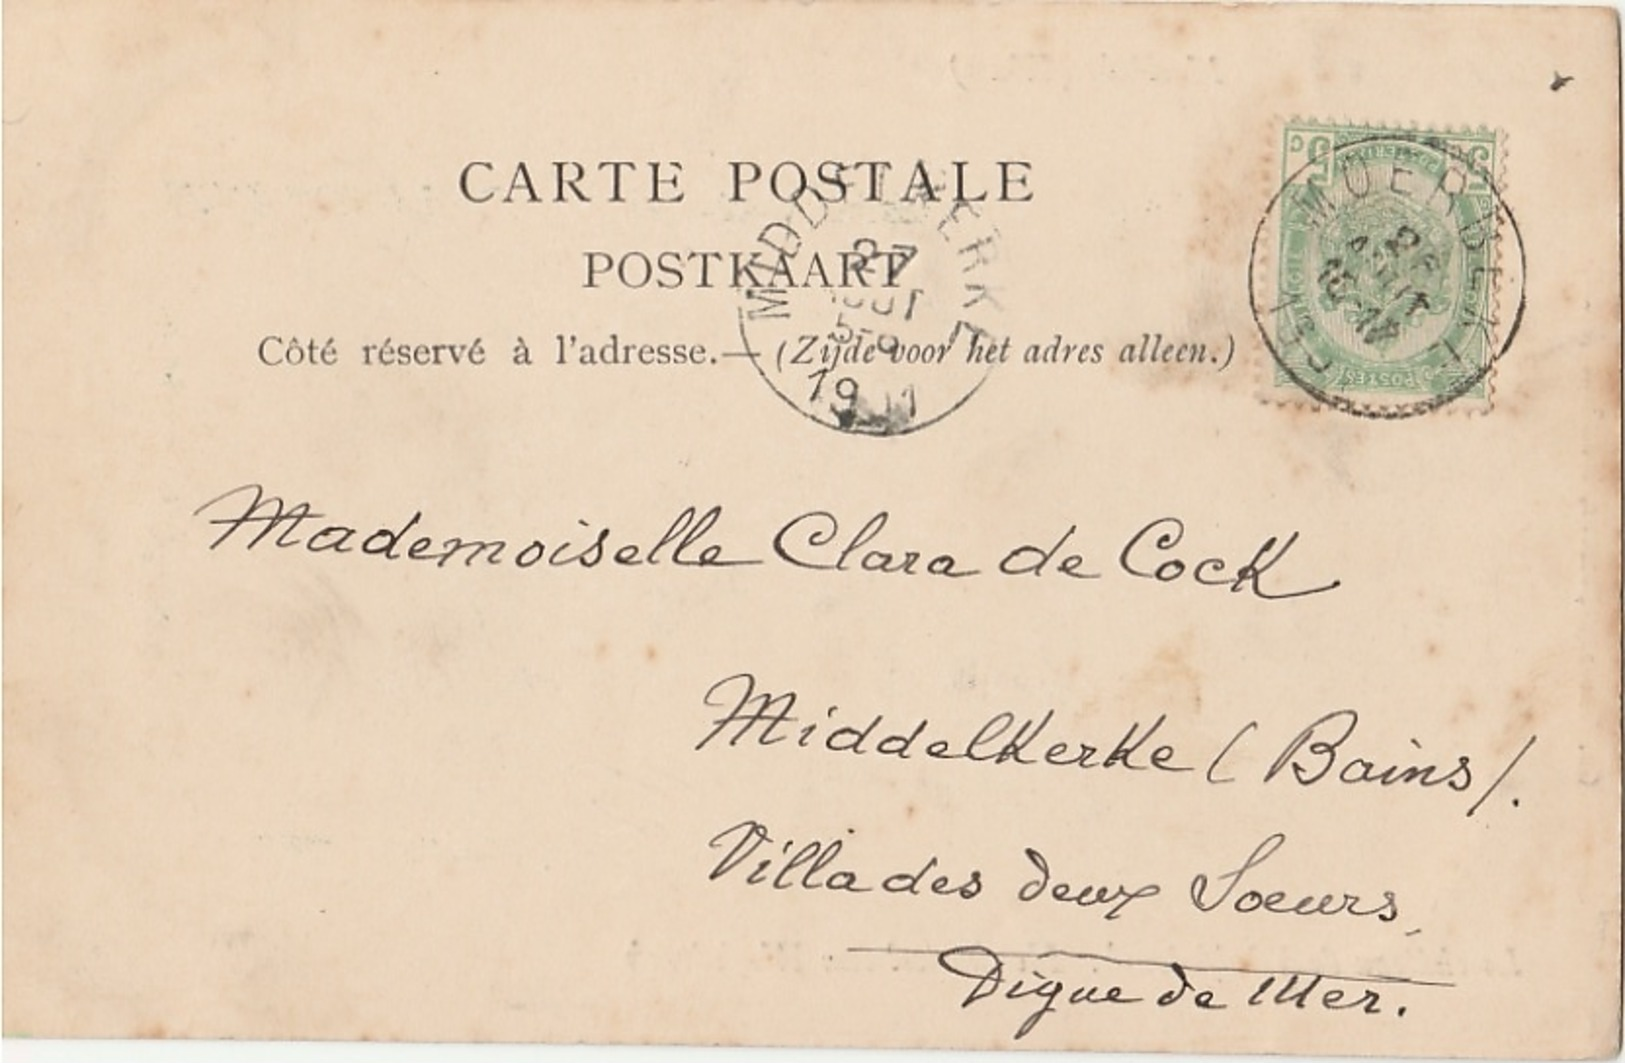 CARTE POSTALE
POSTKAART
Côté réservé à l'adresse.— (Zijde voor het adres alleen.)
MIDDELKERKE
27
AOUT
5-9
19 1
MOERBEKE
AOUT
POSTES
Mademoiselle Clara de Cock
Middelkerke (Bains).
Villa des deux Soeurs,
Digue de Mer.